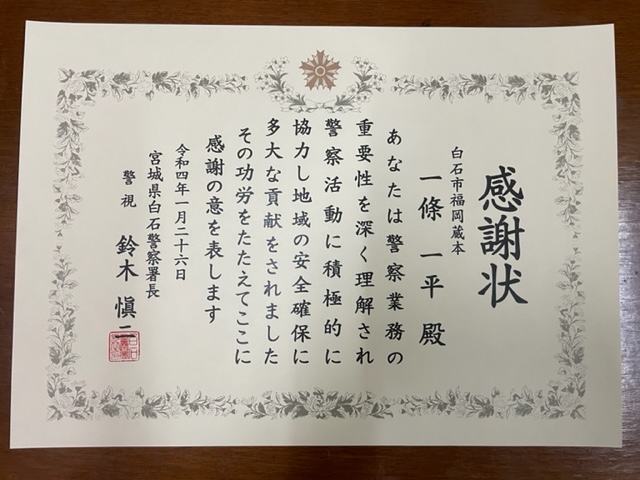 感謝状
白石市福岡蔵本
一條一平殿
あなたは警察業務の
重要性を深く理解され
警察活動に積極的に
協力し地域の安全確保に
多大な貢献をされました
その功労をたたえてここに
感謝の意を表します
令和四年一月二十六日
宮城県白石警察署長
警視 鈴木慎二